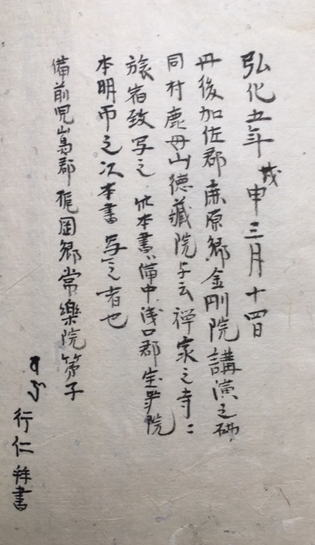 弘化五年戊申三月十四日
丹後加佐郡鹿原郷金剛院講演之砌
同村鹿母山徳蔵院与云禅家之寺ニ
旅宿致写之 此本書ハ備中浅口郡宝院
本明市之次本書写之者也
備前児嶌郡郷常樂院弟子
行仁拜書